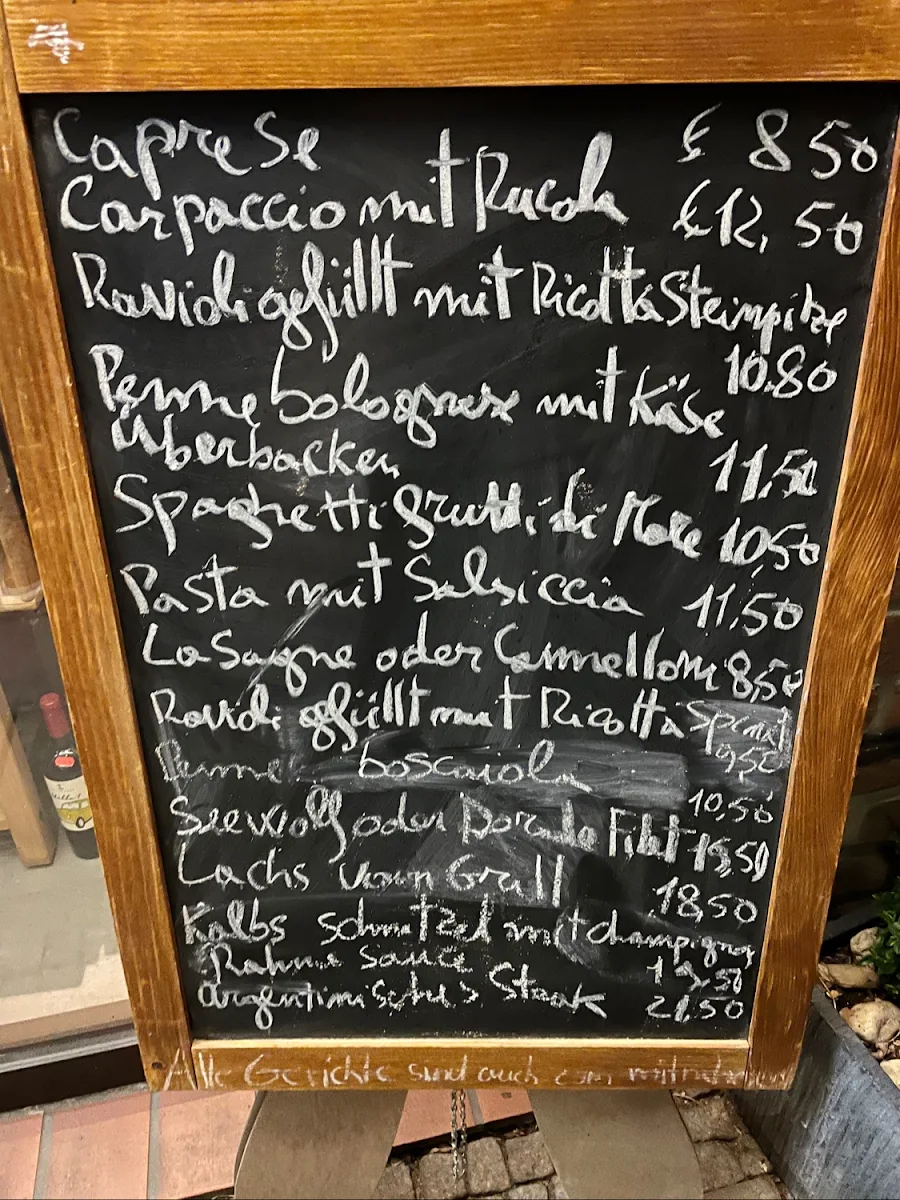 Caprese € 8 50
Carpaccio mit Rucola €12,50
Ravioli gefüllt mit Ricotta Steinpilze
10.80
Penne bolognese mit Käse
Überbacken 11,50
Spaghetti frutti di Mare 10,50
Pasta mit Salsiccia 11,50
LaSagne oder Cannelloni 8,50
Ravioli gefüllt mit Ricotta Spinat
9,50
Penne boscaiola
10,50
Seewolf oder Dorade Filet 19,50
Lachs vom Grill
18,50
Kalbs schnitzel mit champignons
Rahme Sauce 19,50
argentinisches Steak 21,50
Alle Gerichte sind auch zum mitnehmen